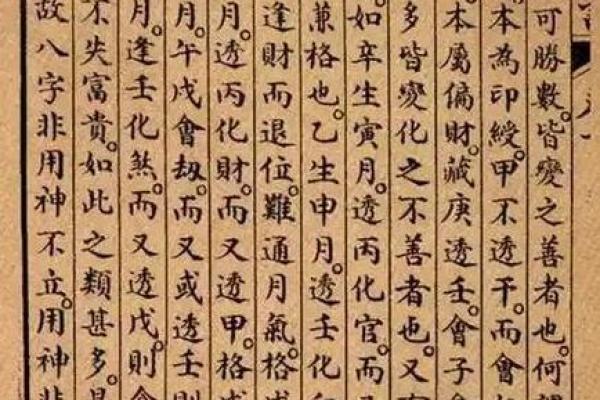 可勝數。皆變之善者也。何謂
本為印綬。甲不透干。而會
本屬偏財。藏庚透壬。會子會
多皆變化之不善者也。又有
如辛生寅月。透丙化官。而又
兼格也。乙生申月。透壬化印
逢財而退位。難通月氣。格成
月。透丙化財。而又透甲。格成
月。午戌會劫。而又或透壬則
月。逢壬化煞。而又透戊。則食
不失富貴。如此之類甚多。是
故八字非用神不立。用神非